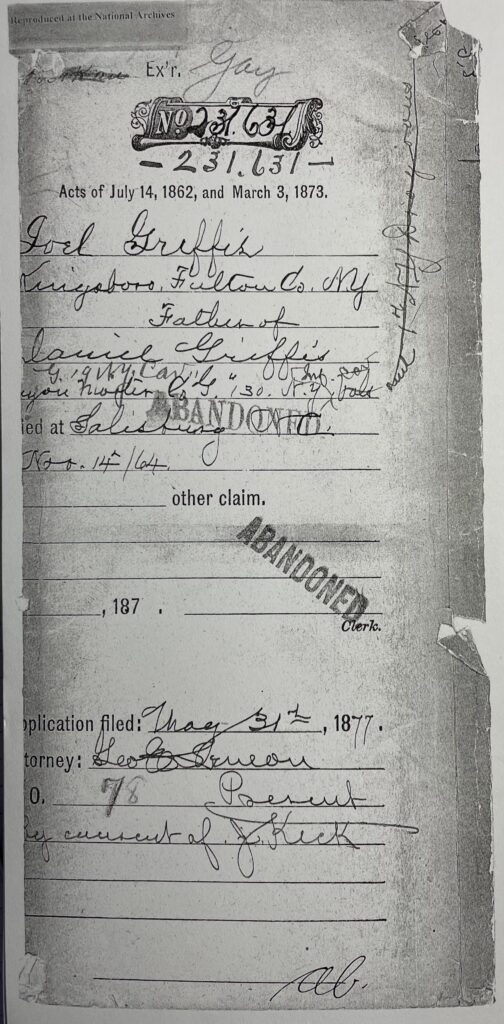 Reproduced at the National Archives
Ex'r. Gay
No 231.631
- 231.631 -
Acts of July 14, 1862, and March 3, 1873.
Joel Griffis
Kingsboro, Fulton Co. NY
Father of
Daniel Griffis
G. 19 N.Y. Cav.
Co. G 130. N.Y. Vols
ABANDONED
ied at Salisbury N.C.
Nov. 14/64
other claim.
ABANDONED
, 187 .
Clerk.
pplication filed: May 31st, 1877.
ttorney: Geo
O. 78 Present
By consent of J. Keck